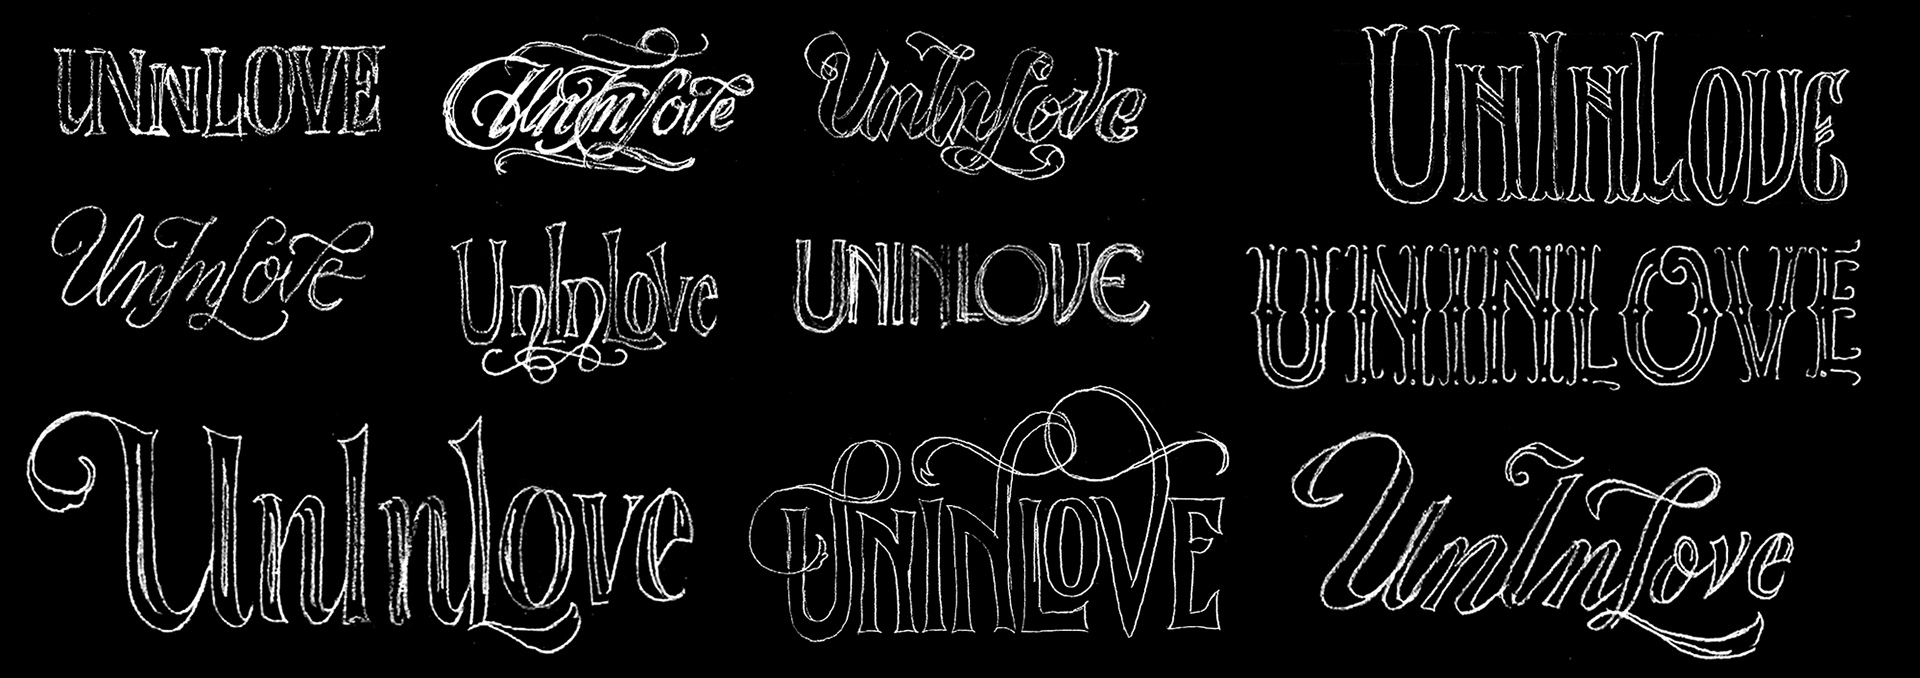 UNINLOVE
UnInLove
UnInLove
UNINLOVE
UnInLove
UnInLove
UNINLOVE
UNINLOVE
UnInLove
UNINLOVE
UnInLove